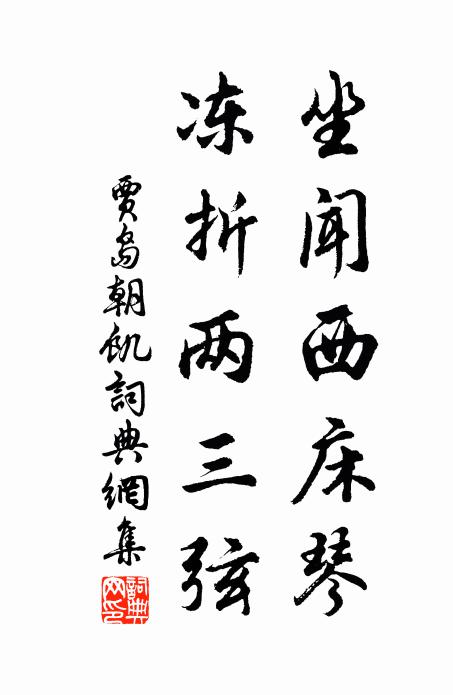 坐闻西床琴
冻折两三弦
賈島朝飢詞典網集
詞典网印